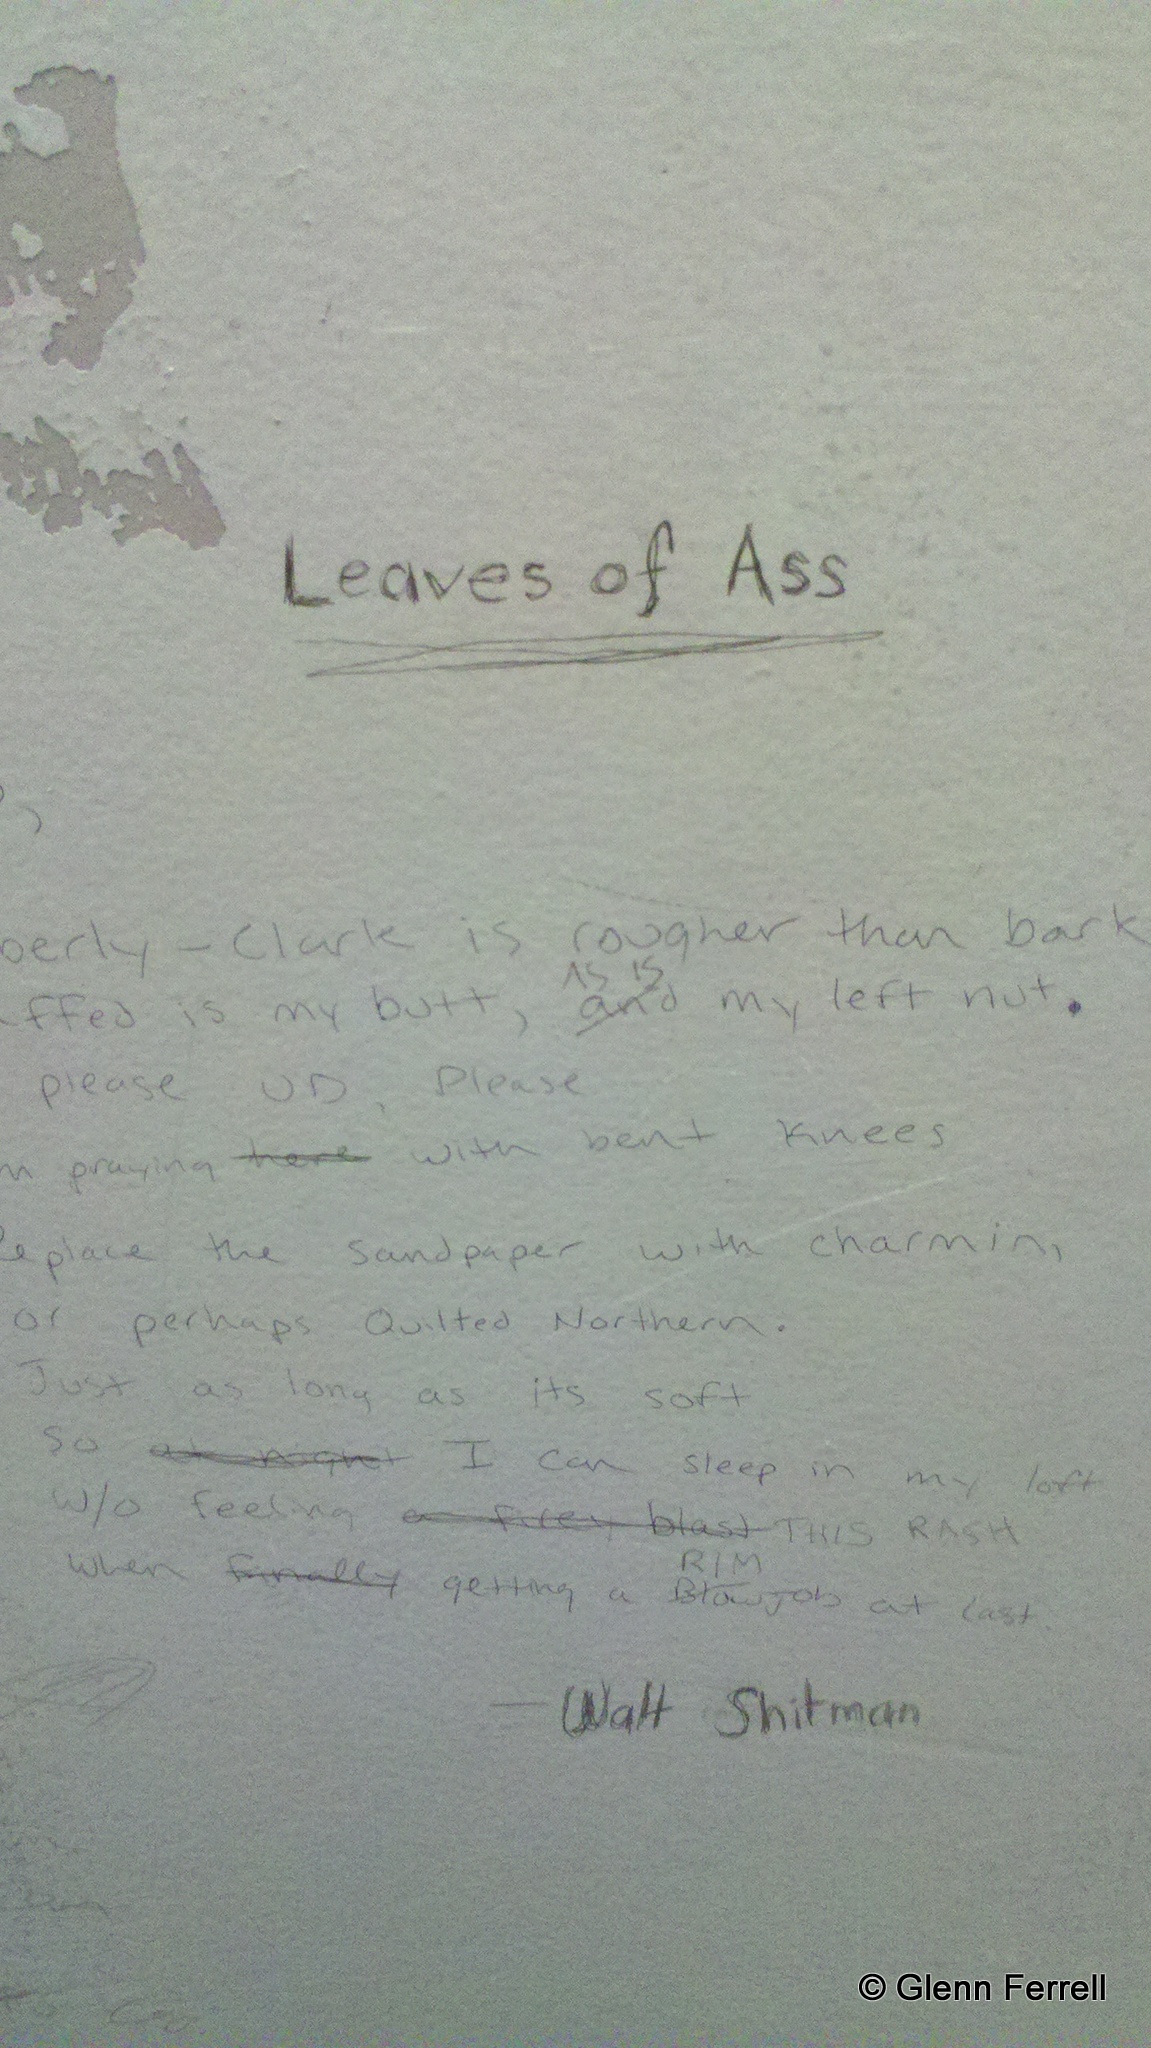 Leaves of Ass
berly - Clark is rougher than bark
AS IS
ffed is my butt, and my left nut.
please UD, Please
m praying here with bent knees
Replace the sandpaper with charmin,
or perhaps Quilted Northern.
Just as long as its soft
So at night I can sleep in my loft
w/o feeling a firey blast THIS RASH
RIM
when finally getting a Blowjob at last
— Walt Shitman
© Glenn Ferrell